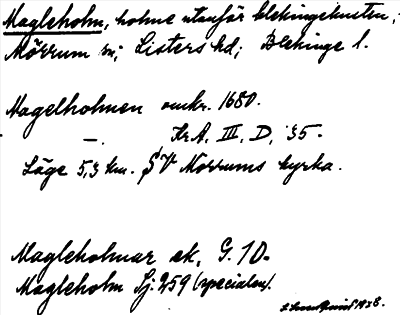 Magleholm, holme utanför blekingekusten,
Mörrum sn; Listers hd; Blekinge l.
Magelholmen omkr. 1680.
— . Kr.A. III, D, 35.
Läge 5,3 km. SV Mörrums kyrka.
Magleholmar ek. G. 10.
Magleholm Sj. 259 (specialen).
1938.